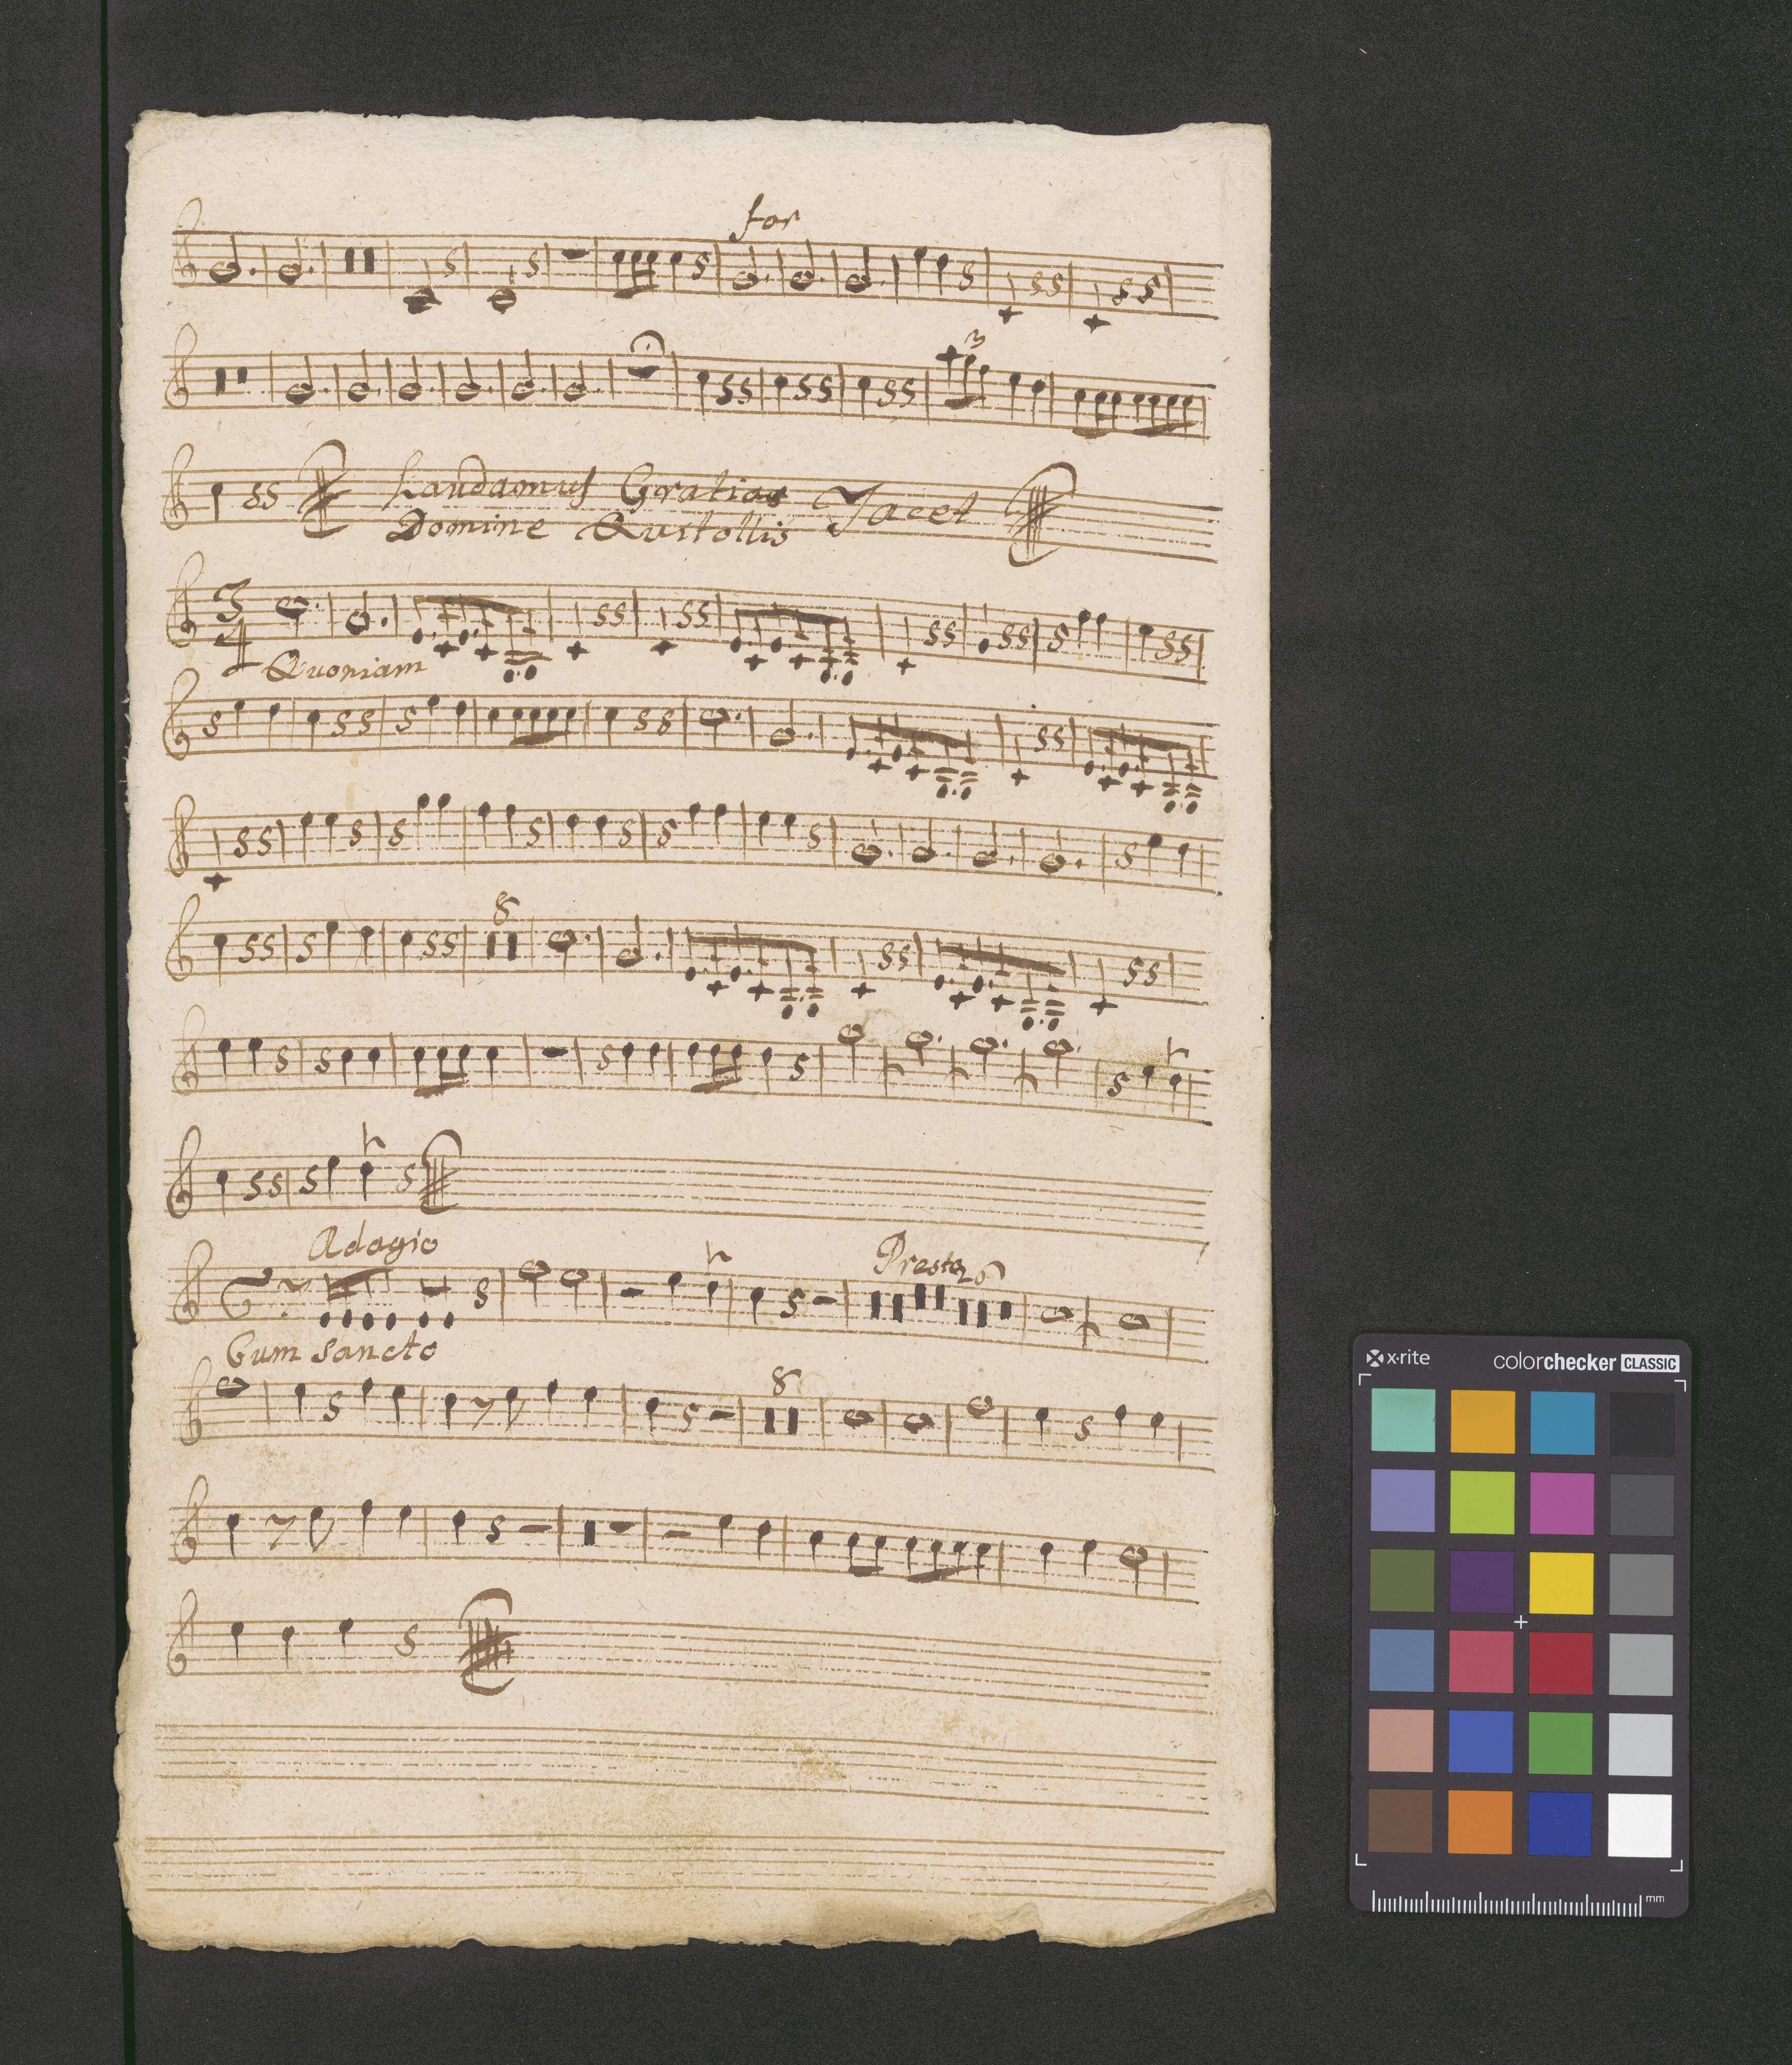 for
3
Laudamus Gratias Tacet
Domine Qui tollis
3
4
Quoniam
8
Adagio
Presto 26
Cum Sancto
8
x-rite colorchecker CLASSIC
mm